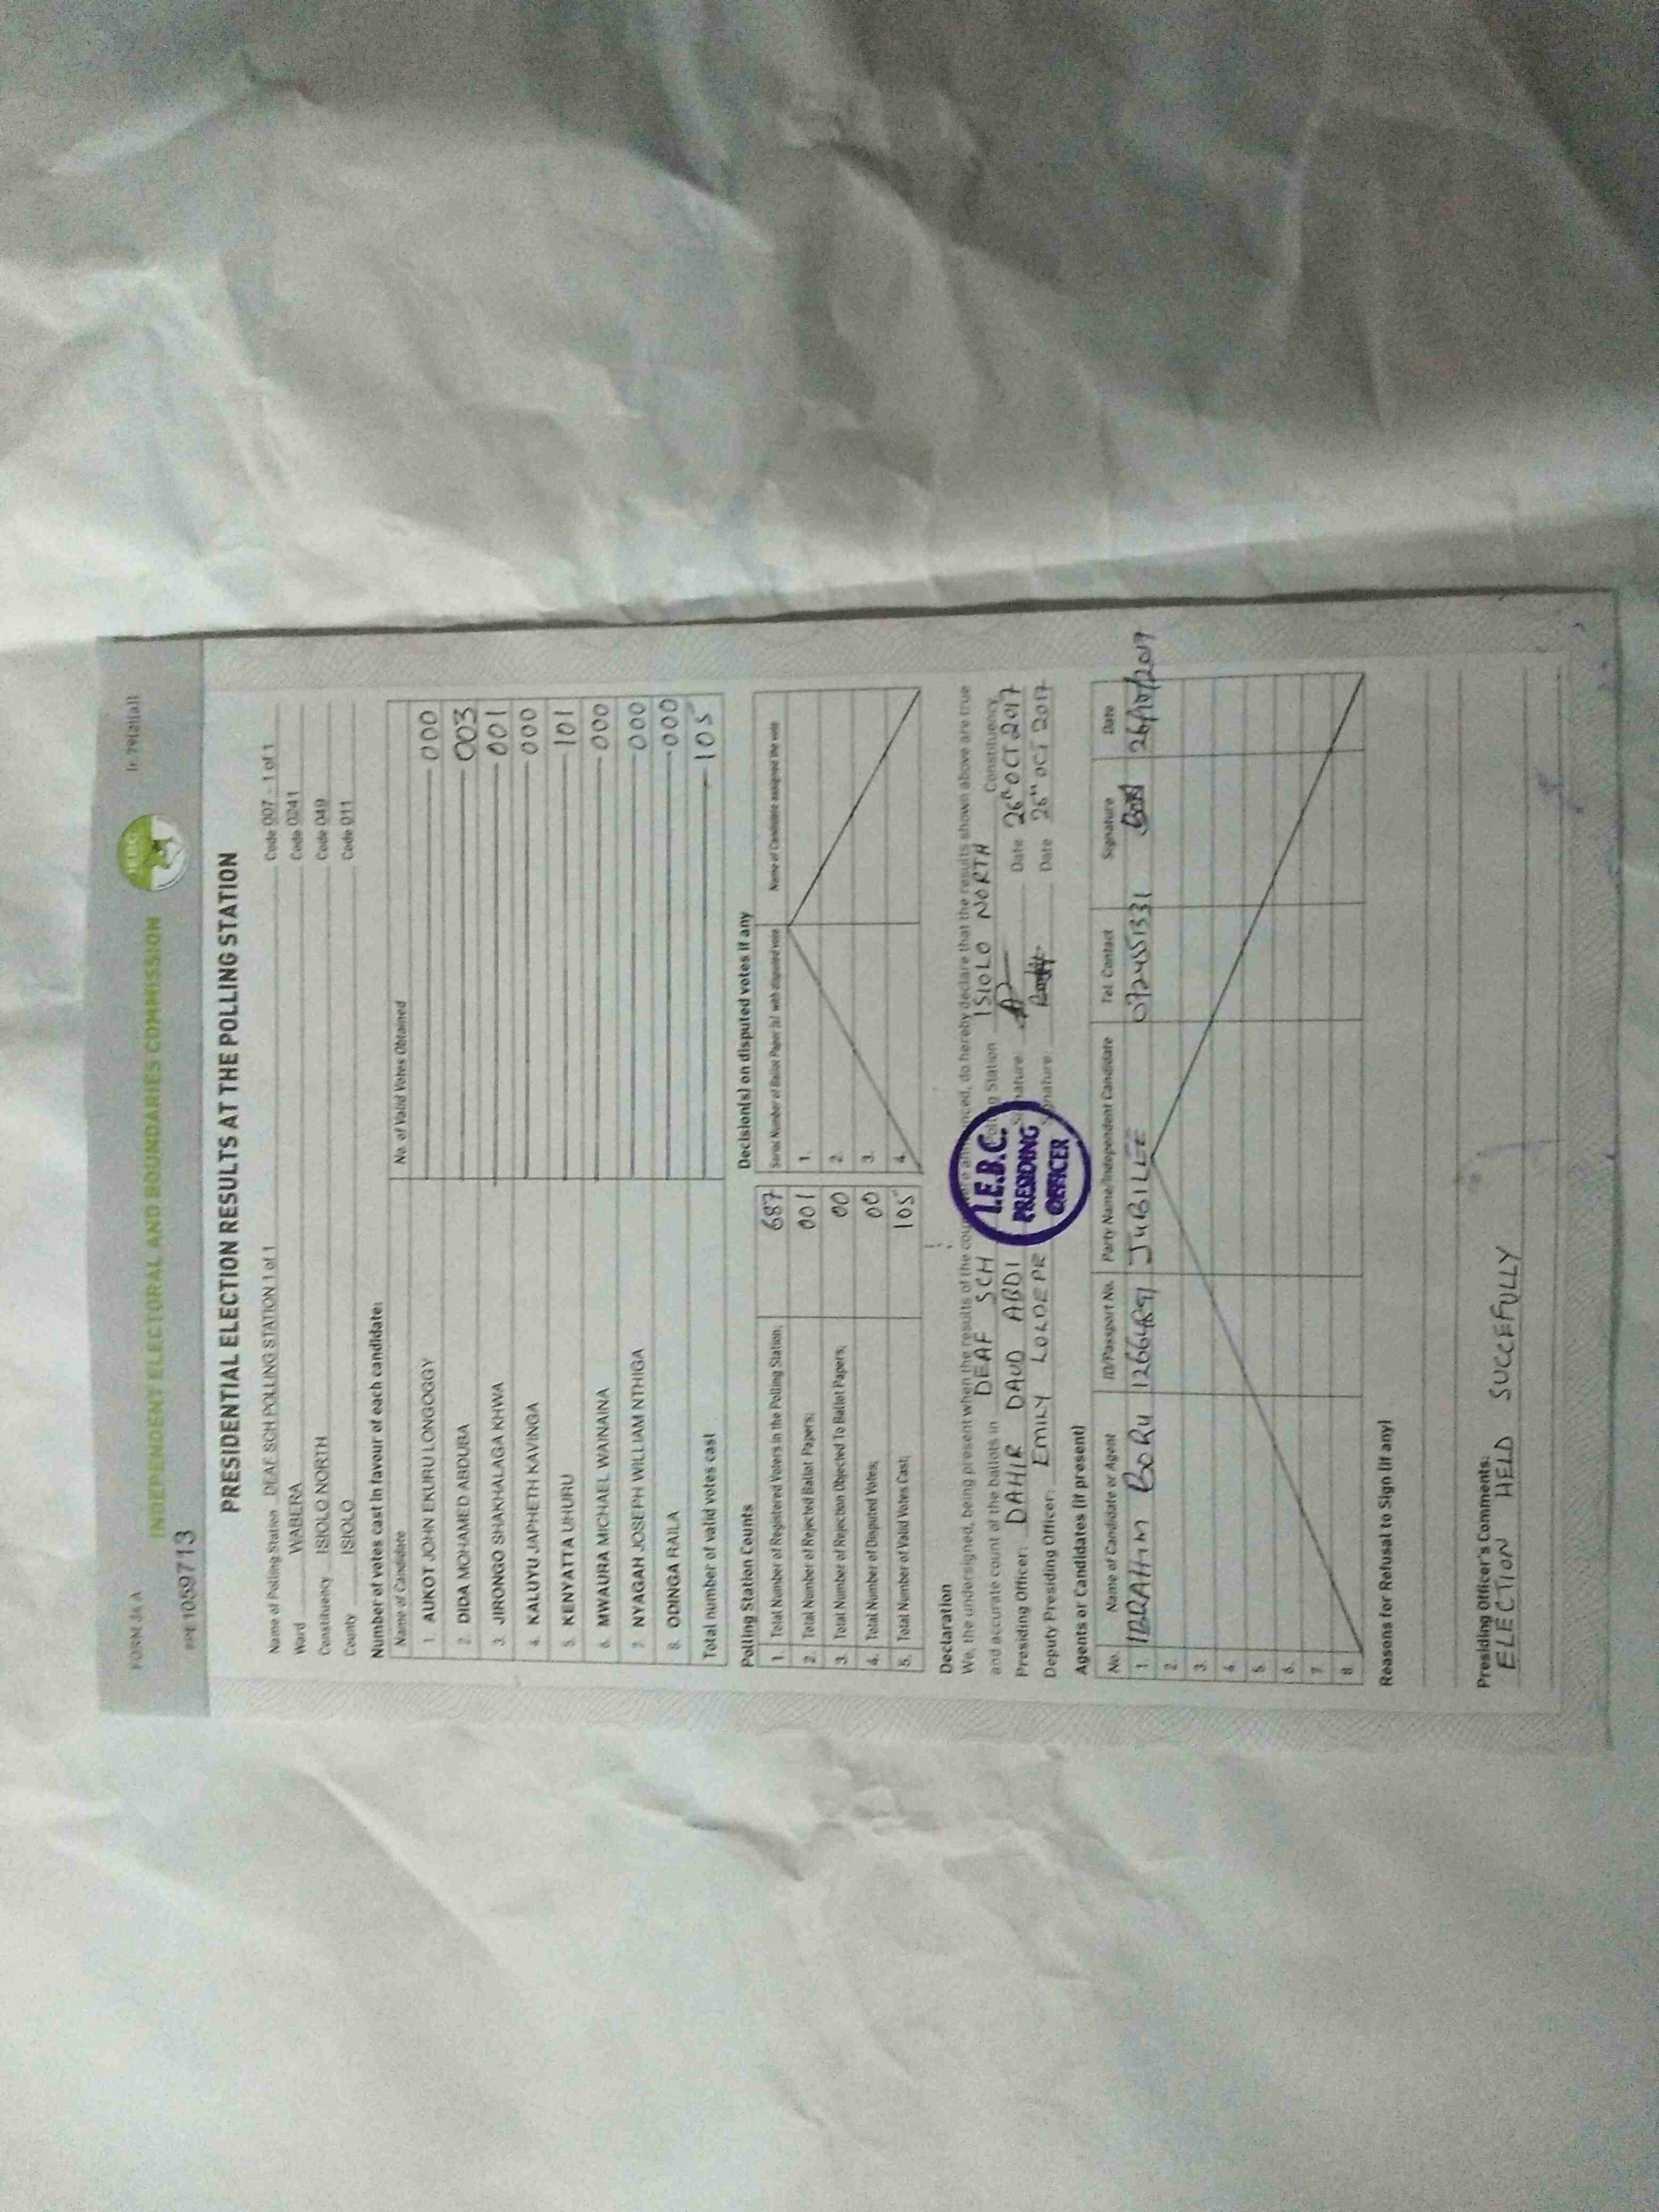 FORM 34 A
INDEPENDENT ELECTORAL AND BOUNDARIES COMMISSION
IEBC
#PE 1059713
PRESIDENTIAL ELECTION RESULTS AT THE POLLING STATION
Name of Polling Station DEAF SCH POLLING STATION 1 of 1 Code 007 - 1 of 1
Ward WABERA Code 0241
Constituency ISIOLO NORTH Code 049
County ISIOLO Code 011
Number of votes cast in favour of each candidate:
Name of Candidate No. of Valid Votes Obtained
1. AUKOT JOHN EKURU LONGOGGY 000
2. DIDA MOHAMED ABDUBA 003
3. JIRONGO SHAKHALAGA KHWA 001
4. KALUYU JAPHETH KAVINGA 000
5. KENYATTA UHURU 101
6. MWAURA MICHAEL WAINAINA 000
7. NYAGAH JOSEPH WILLIAM NTHIGA 000
8. ODINGA RAILA 000
Total number of valid votes cast 105
Polling Station Counts
1. Total Number of Registered Voters in the Polling Station; 687
2. Total Number of Rejected Ballot Papers; 001
3. Total Number of Rejection Objected To Ballot Papers; 00
4. Total Number of Disputed Votes; 00
5. Total Number of Valid Votes Cast; 105
Decision(s) on disputed votes if any
Serial Number of Ballot Paper (s) with disputed vote Name of Candidate assigned the vote
1.
2.
3.
4.
Declaration
We, the undersigned, being present when the results of the count were announced, do hereby declare that the results shown above are true
and accurate count of the ballots in DEAF SCH Polling Station ISIOLO NORTH Constituency
Presiding Officer: DAHIR DAUD ABDI Signature Date 26th OCT 2017
Deputy Presiding Officer: EMILY LOLDEPE Signature Date 26th OCT 2017
I.E.B.C.
PRESIDING
OFFICER
Agents or Candidates (if present)
No. Name of Candidate or Agent ID/Passport No. Party Name/Independent Candidate Tel. Contact Signature Date
1. IBRAHIM BORU JUBILEE 26/10/2017
2.
3.
4.
5.
6.
7.
8.
Reasons for Refusal to Sign (if any)
Presiding Officer's Comments:
ELECTION HELD SUCCEFULLY